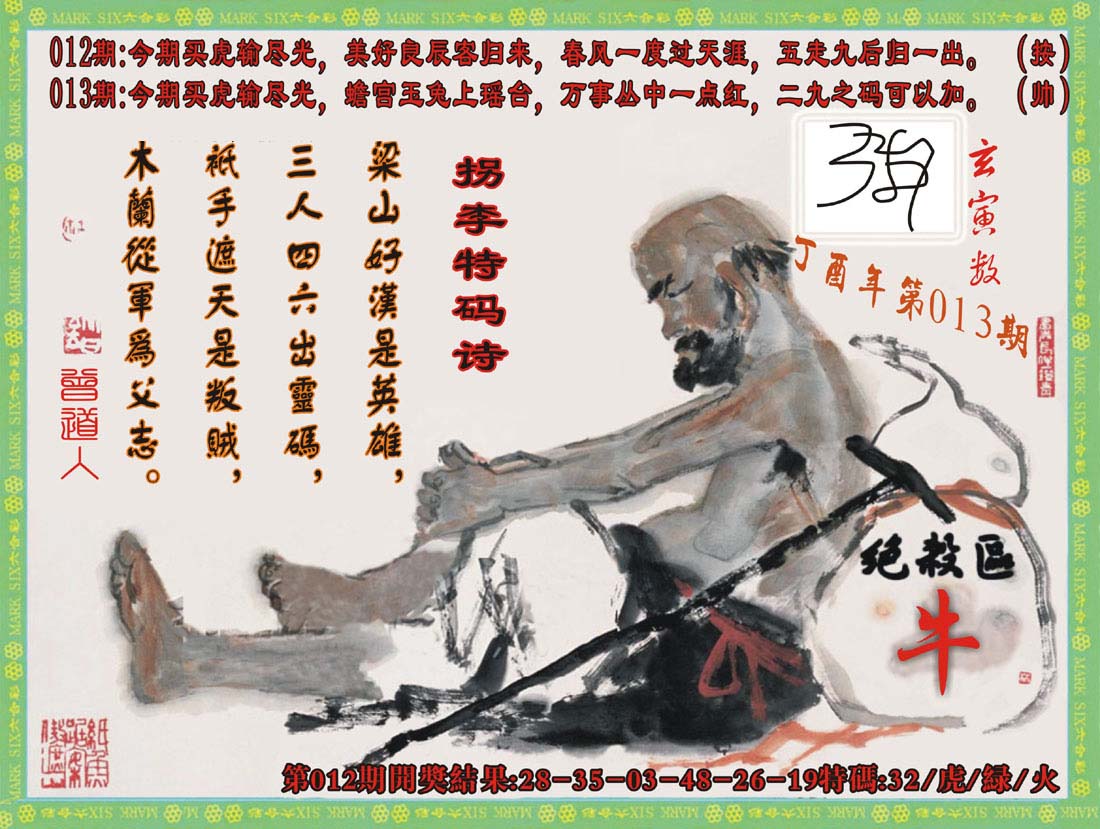 MARK SIX六合彩
012期:今期买虎输尽光，美好良辰客归来，春风一度过天涯，五走九后归一出。（按）
013期:今期买虎输尽光，蟾宫玉兔上瑶台，万事丛中一点红，二九之码可以加。（帅）
玄寅数
丁酉年第013期
拐李特码诗
梁山好漢是英雄，
三人四六出靈碼，
衹手遮天是叛賊，
木蘭從軍爲父志。
曾道人
绝殺區
牛
第012期開獎結果:28-35-03-48-26-19特碼:32/虎/緑/火